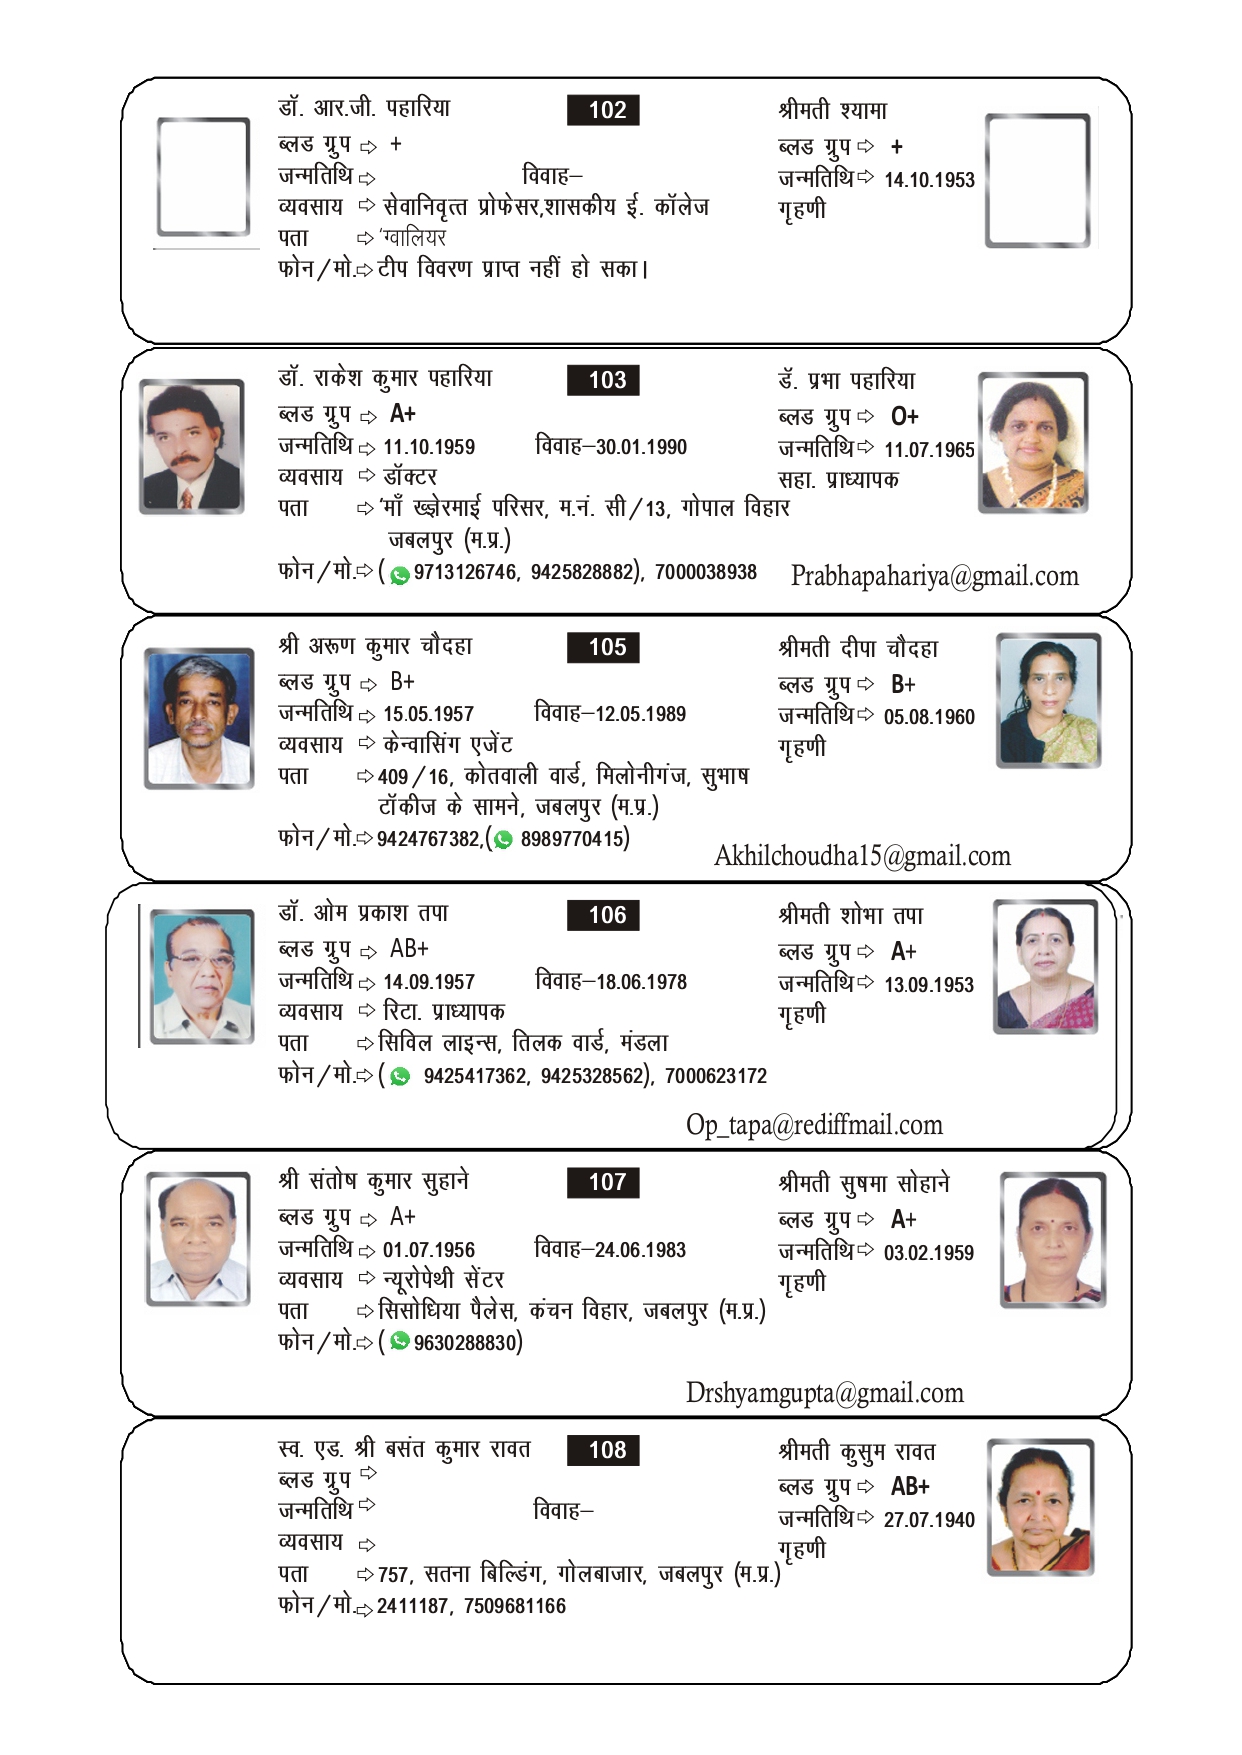 डॉ. आर.जी. पहारिया 102 श्रीमती श्यामा
ब्लड ग्रुप ⇨ + ब्लड ग्रुप ⇨ +
जन्मतिथि ⇨ विवाह– जन्मतिथि ⇨ 14.10.1953
व्यवसाय ⇨ सेवानिवृत्त प्रोफेसर,शासकीय ई. कॉलेज गृहणी
पता ⇨ ‘ग्वालियर
फोन/मो.⇨ टीप विवरण प्राप्त नहीं हो सका।
डॉ. राकेश कुमार पहारिया 103 डॅ. प्रभा पहारिया
ब्लड ग्रुप ⇨ A+ ब्लड ग्रुप ⇨ O+
जन्मतिथि ⇨ 11.10.1959 विवाह–30.01.1990 जन्मतिथि ⇨ 11.07.1965
व्यवसाय ⇨ डॉक्टर सहा. प्राध्यापक
पता ⇨ ‘माँ ख्ज्ञेरमाई परिसर, म.नं. सी/13, गोपाल विहार
जबलपुर (म.प्र.)
फोन/मो.⇨ ( 9713126746, 9425828882), 7000038938 Prabhapahariya@gmail.com
श्री अरूण कुमार चौदहा 105 श्रीमती दीपा चौदहा
ब्लड ग्रुप ⇨ B+ ब्लड ग्रुप ⇨ B+
जन्मतिथि ⇨ 15.05.1957 विवाह–12.05.1989 जन्मतिथि ⇨ 05.08.1960
व्यवसाय ⇨ केन्वासिंग एजेंट गृहणी
पता ⇨ 409/16, कोतवाली वार्ड, मिलोनीगंज, सुभाष
टॉकीज के सामने, जबलपुर (म.प्र.)
फोन/मो.⇨ 9424767382,( 8989770415)
Akhilchoudha15@gmail.com
डॉ. ओम प्रकाश तपा 106 श्रीमती शोभा तपा
ब्लड ग्रुप ⇨ AB+ ब्लड ग्रुप ⇨ A+
जन्मतिथि ⇨ 14.09.1957 विवाह–18.06.1978 जन्मतिथि ⇨ 13.09.1953
व्यवसाय ⇨ रिटा. प्राध्यापक गृहणी
पता ⇨ सिविल लाइन्स, तिलक वार्ड, मंडला
फोन/मो.⇨ ( 9425417362, 9425328562), 7000623172
Op_tapa@rediffmail.com
श्री संतोष कुमार सुहाने 107 श्रीमती सुषमा सोहाने
ब्लड ग्रुप ⇨ A+ ब्लड ग्रुप ⇨ A+
जन्मतिथि ⇨ 01.07.1956 विवाह–24.06.1983 जन्मतिथि ⇨ 03.02.1959
व्यवसाय ⇨ न्यूरोपेथी सेंटर गृहणी
पता ⇨ सिसोधिया पैलेस, कंचन विहार, जबलपुर (म.प्र.)
फोन/मो.⇨ ( 9630288830)
Drshyamgupta@gmail.com
स्व. एड. श्री बसंत कुमार रावत 108 श्रीमती कुसुम रावत
ब्लड ग्रुप ⇨ ब्लड ग्रुप ⇨ AB+
जन्मतिथि ⇨ विवाह– जन्मतिथि ⇨ 27.07.1940
व्यवसाय ⇨ गृहणी
पता ⇨ 757, सतना बिल्डिंग, गोलबाजार, जबलपुर (म.प्र.)
फोन/मो.⇨ 2411187, 7509681166